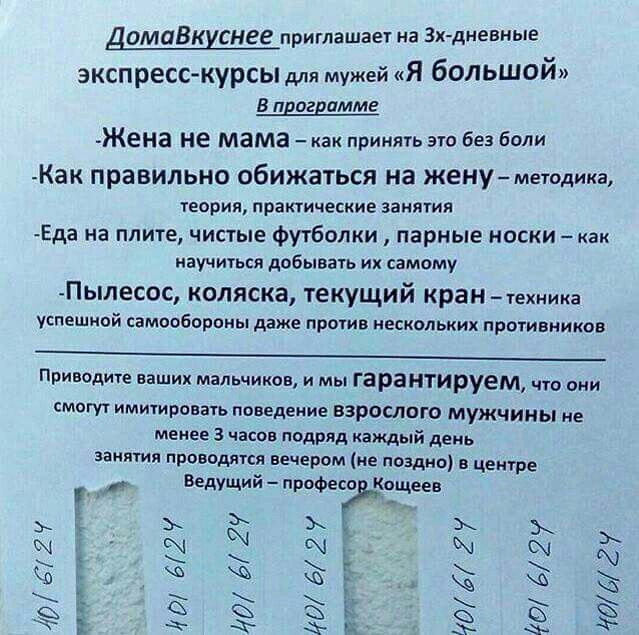 ДомаВкуснее приглашает на 3х-дневные
экспресс-курсы для мужей «Я большой»
В программе
-Жена не мама – как принять это без боли
-Как правильно обижаться на жену – методика,
теория, практические занятия
-Еда на плите, чистые футболки , парные носки – как
научиться добывать их самому
-Пылесос, коляска, текущий кран – техника
успешной самообороны даже против нескольких противников
Приводите ваших мальчиков, и мы гарантируем, что они
смогут имитировать поведение взрослого мужчины не
менее 3 часов подряд каждый день
занятия проводятся вечером (не поздно) в центре
Ведущий – професор Кощеев
401 61 24
401 61 24
401 61 24
401 61 24
401 61 24
401 61 24
401 61 24